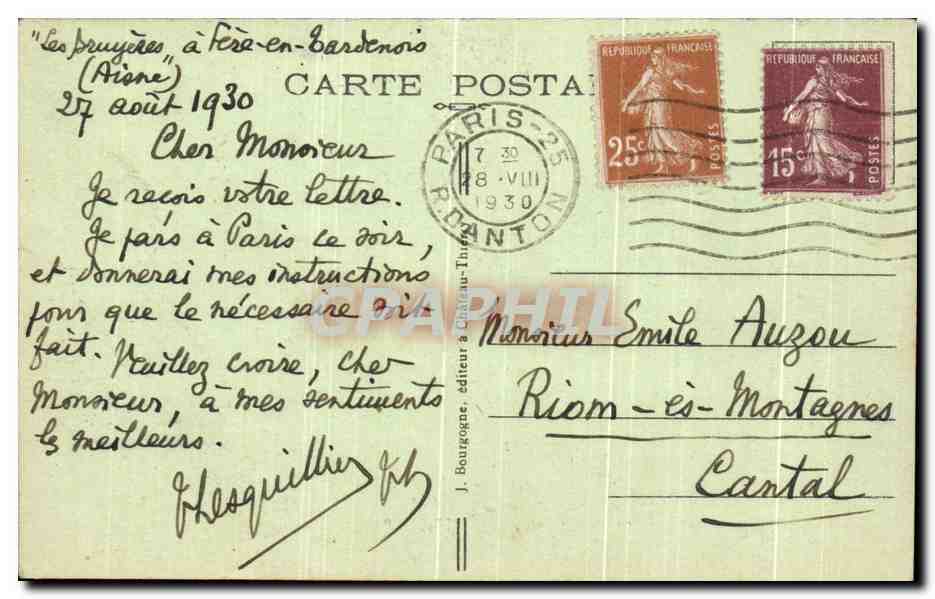 "Les Bruyères" à Fère-en-Tardenois
(Aisne)
27 août 1930
CARTE POSTA
Cher Monsieur
Je reçois votre lettre.
Je pars à Paris ce soir,
et donnerai mes instructions
pour que le nécessaire soit
fait. Veuillez croire, cher
Monsieur, à mes sentiments
les meilleurs.
J. Bourgogne, éditeur à Château-Thie
PARIS-25
7 30
28 ·VIII
1930
R. DANTON
REPUBLIQUE FRANÇAISE
25c
POSTES
REPUBLIQUE FRANÇAISE
15c
POSTES
Monsieur Emile Auzou
Riom-ès-Montagnes
Cantal
CPAPHIL